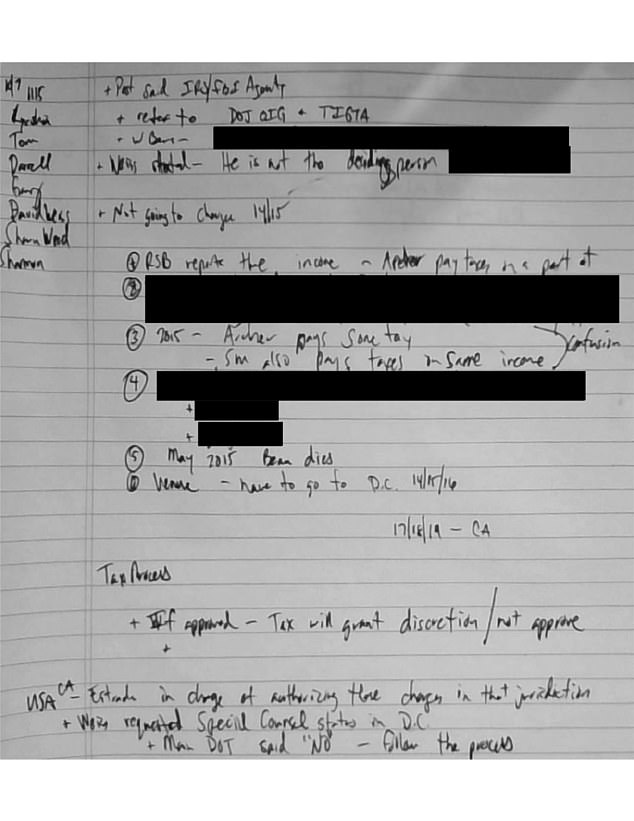 10/7 1115 + Post said IRS/FBI Agents
+ refer to DOJ OIG + TIGTA
Tom
Darrell + Weiss stated - He is not the deciding person
Gary
David Weiss + Not going to charge 14/15
Shawn Weed
Shannon ① RSB reports the income - Archer pay taxes on a part of
②
③ 2015 - Archer pays some tax
- SM also pays taxes on same income confusion
④
+
+
⑤ May 2015 Beau dies
⑥ Venue - have to go to D.C. 14/15/16
17/18/19 - CA
Tax Process
+ If approved - Tax will grant discretion / not approve
+
USA CA - Estrada in charge of authorizing those charges in that jurisdiction
+ Weiss requested Special Counsel status in D.C.
+ Main DOJ said "No" - follow the process